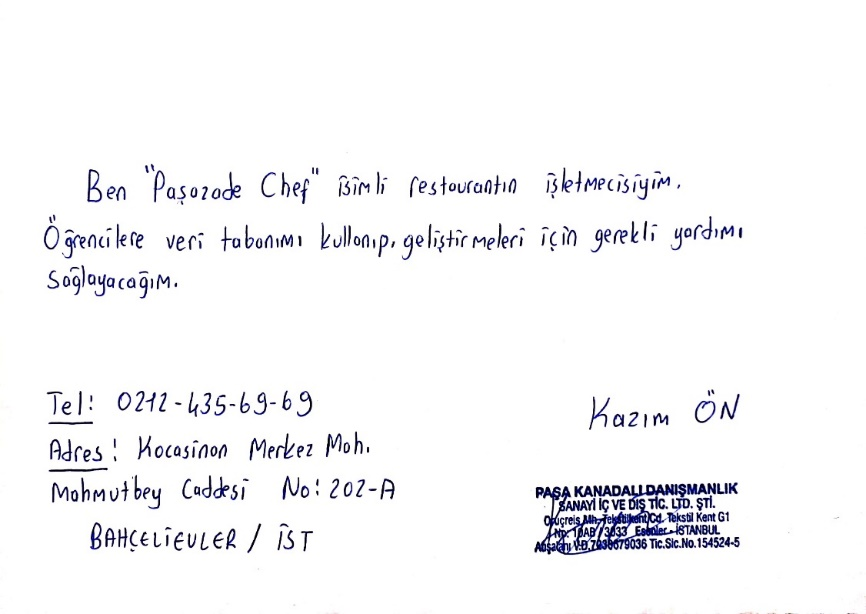 Ben "Paşazade Chef" isimli restourantın işletmecisiyim.
Öğrencilere veri tabanımı kullanıp, geliştirmeleri için gerekli yardımı
sağlayacağım.
Tel: 0212-435-69-69
Adres: Kocasinan Merkez Mah.
Mahmutbey Caddesi No: 202-A
BAHÇELİEVLER / İST
Kazım ÖN
PAŞA KANADALI DANIŞMANLIK
SANAYİ İÇ VE DIŞ TİC. LTD. ŞTİ.
Oruçreis Mh. Tekstilkent Cd. Tekstil Kent G1
No: 10AB / 3033 Esenler - İSTANBUL
V.D. 7938679036 Tic.Sic.No.154524-5